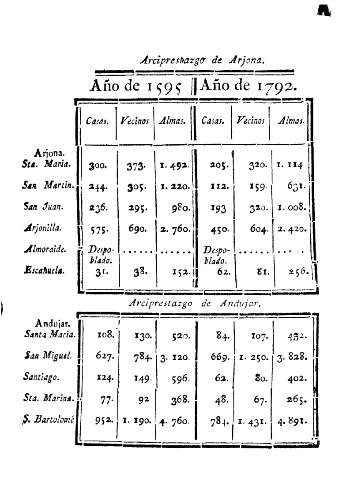 Arciprestazgo de Arjona.
Año de 1595 Año de 1792.
Casas. Vecinos Almas. Casas. Vecinos Almas.
Arjona.
Sta. Maria. 300. 373. 1. 492. 205. 320. 1. 114
San Martin. 244. 305. 1. 220. 112. 159. 631.
San Juan. 236. 295. 980. 193 320. 1. 008.
Arjonilla. 575. 690. 2. 760. 450. 604. 2. 420.
Almoraide. Despoblado. .......... .......... Despoblado. .......... ..........
Escañuela. 31. 38. 152. 62. 81. 256.
Arciprestazgo de Andujar.
Andujar.
Santa Maria. 108. 130. 520. 84. 107. 432.
San Miguel. 627. 784. 3. 120. 669. 1. 250. 3. 828.
Santiago. 124. 149. 596. 62. 80. 402.
Sta. Marina. 77. 92 368. 48. 67. 265.
S. Bartolomé 952. 1. 190. 4. 760. 784. 1. 431. 4. 891.